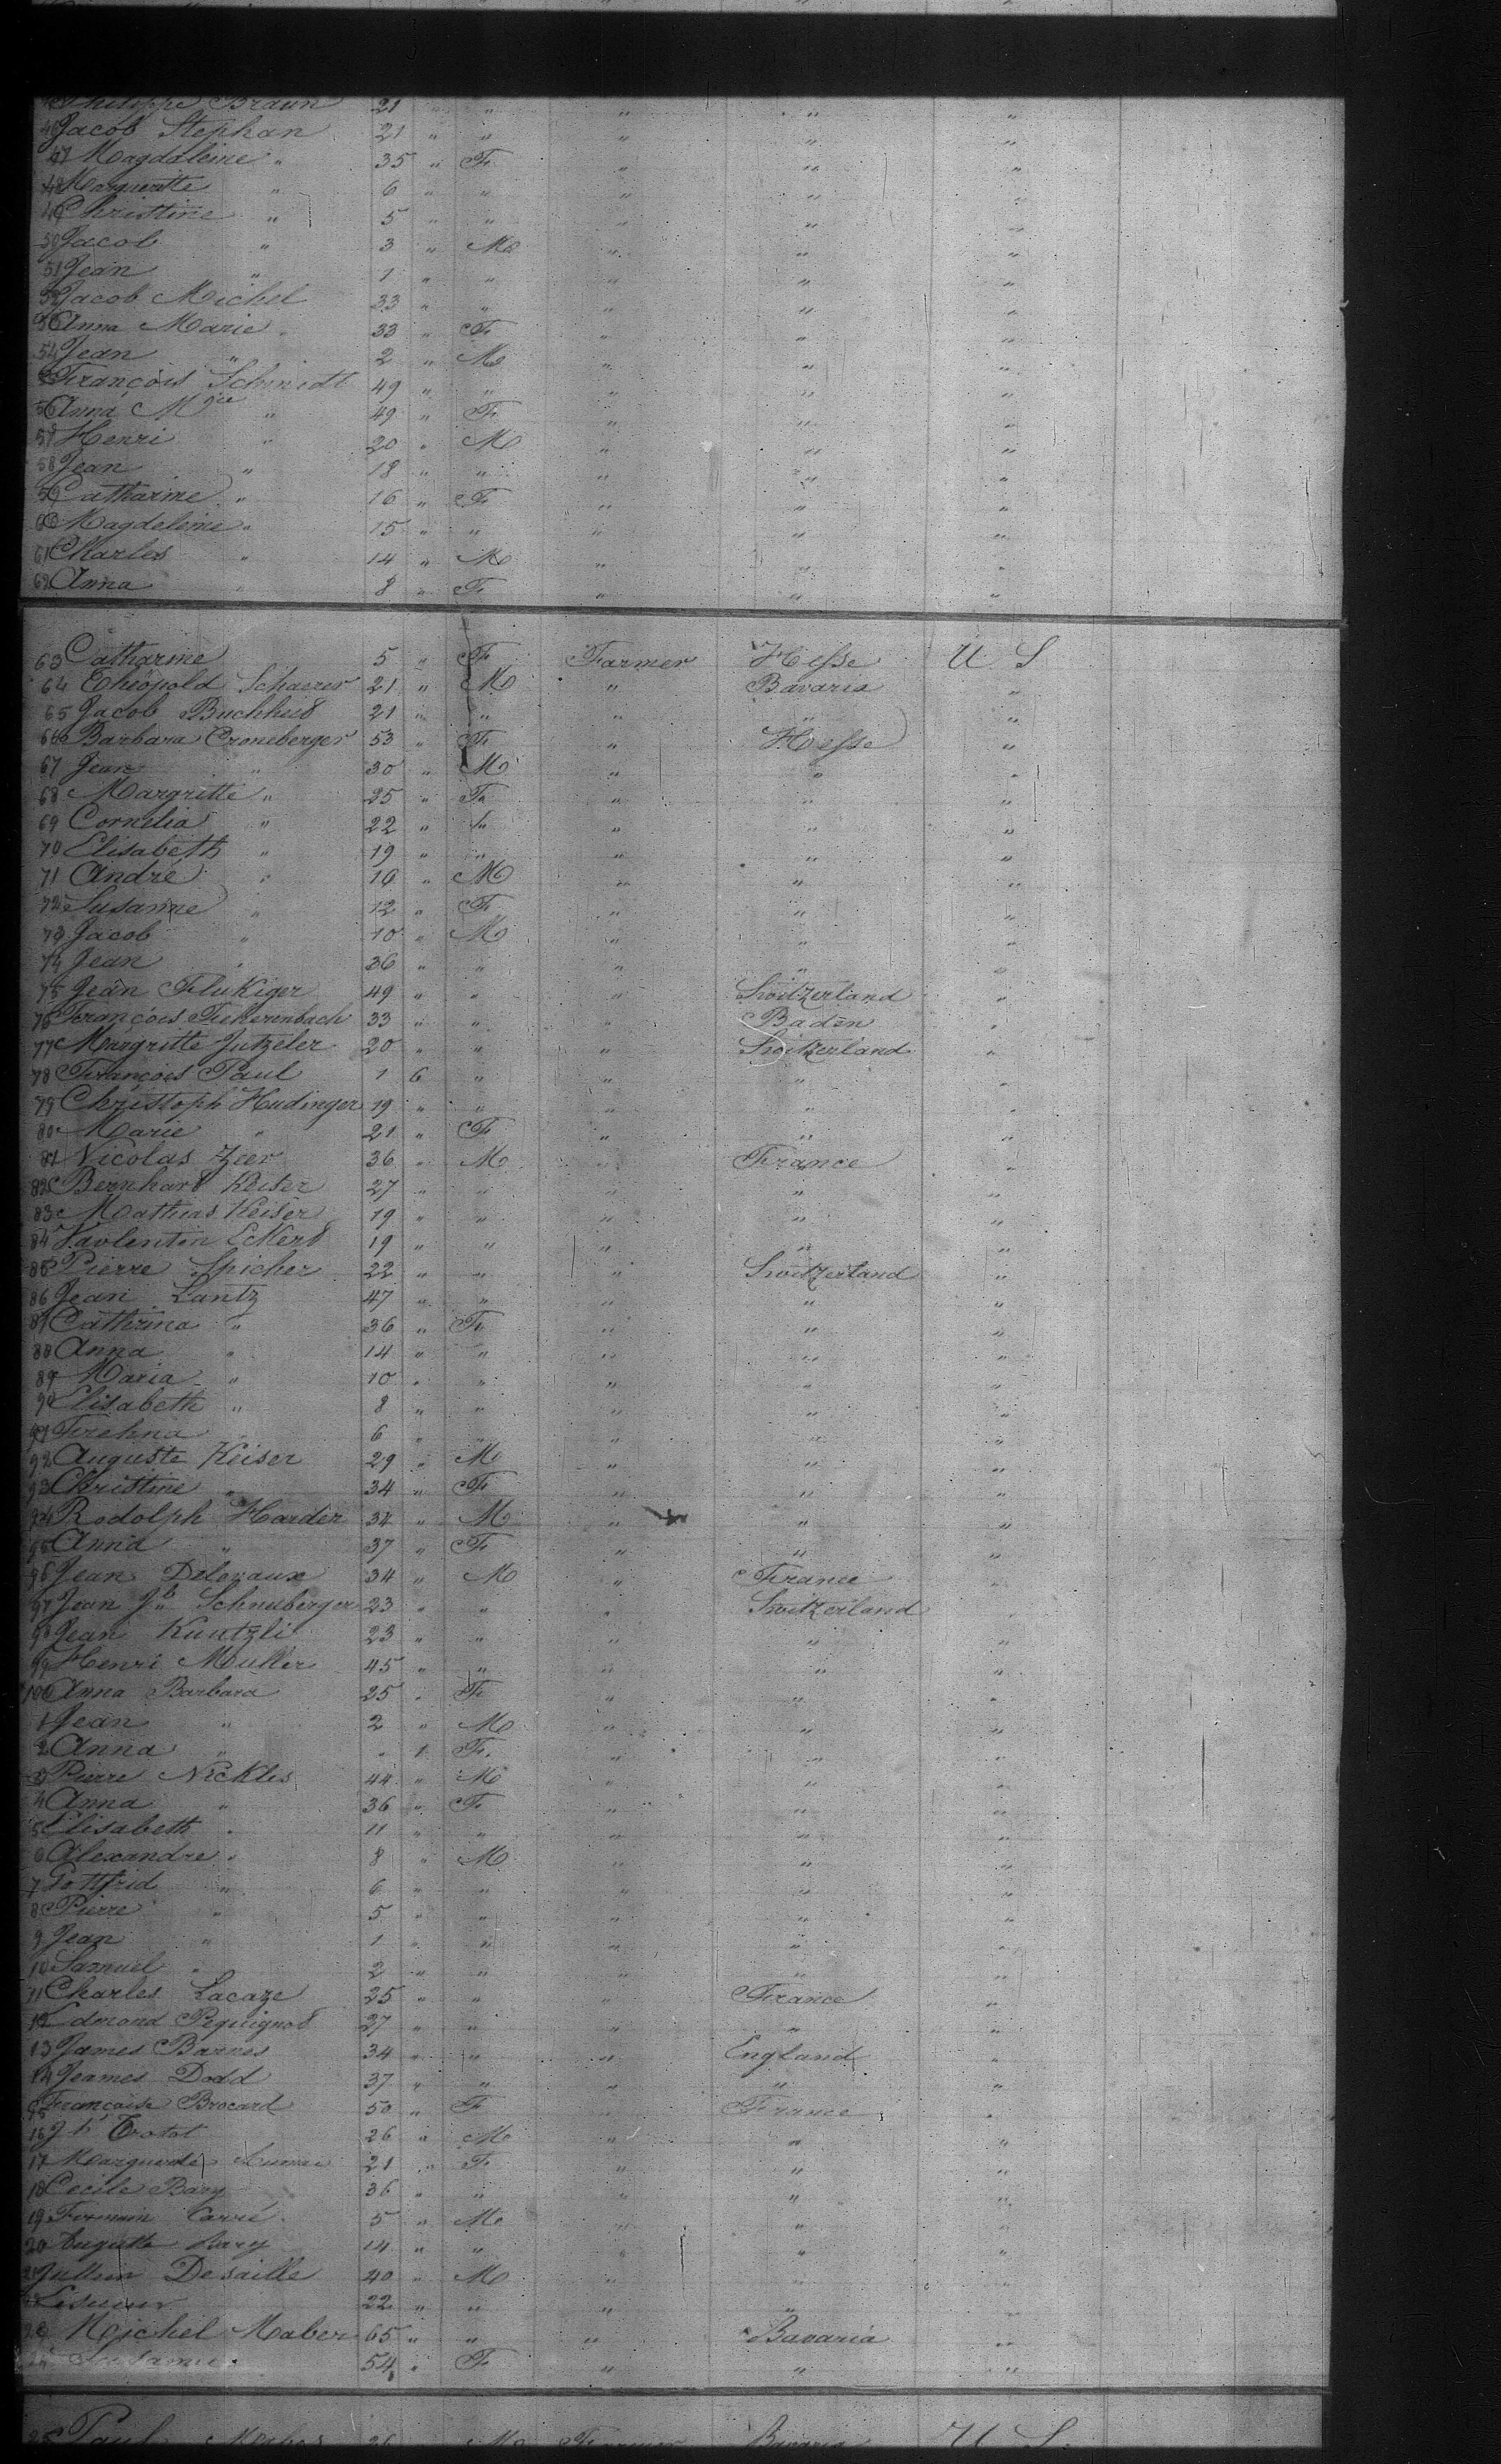 Philippe Braun 21 " " " " "
46 Jacob Stephan 21 " " " " "
47 Magdaleine " 35 " F " " "
48 Marguerite " 6 " " " " "
49 Christine " 5 " " " " "
50 Jacob " 3 " M " " "
51 Jean " 1 " " " " "
52 Jacob Michel 33 " " " " "
53 Anna Marie " 33 " F " " "
54 Jean " 2 " M " " "
55 François Schmidt 49 " " " " "
56 Anna Mgie " 49 " F " " "
57 Henri " 20 " M " " "
58 Jean " 18 " " " " "
59 Catharine " 16 " F " " "
60 Magdeleine " 15 " " " " "
61 Charles " 14 " M " " "
62 Anna " 8 " F " " "
63 Catharine 5 " F Farmer Hesse U S
64 Théopold Schaerer 21 " M " Bavaria "
65 Jacob 21 " " " " "
66 Barbara Croneberger 53 " F " Hesse "
67 Jean " 30 " M " " "
68 Margritte " 25 " F " " "
69 Cornelia " 22 " " " " "
70 Elisabeth " 19 " " " " "
71 André " 19 " M " " "
72 Susanne " 12 " F " " "
73 Jacob " 10 " M " " "
74 Jean " 36 " " " " "
75 Jean Flukiger 49 " " " Switzerland "
76 François 33 " " " Baden "
77 Margritte Jutzeler 20 " " " Switzerland "
78 François Paul 1 6 " " " "
79 Christoph Hudinger 19 " " " " "
80 Marie " 21 " F " " "
81 Nicolas Zeer 36 " M " France "
82 Bernhart Keiser 27 " " " " "
83 Mathias Keiser 19 " " " " "
84 Vavlentin Eckert 19 " " " " "
85 Pierre Spicher 22 " " " Switzerland "
86 Jean Lantz 47 " " " " "
87 Cathrina " 36 " F " " "
88 Anna " 14 " " " " "
89 Maria " 10 " " " " "
90 Elisabeth " 8 " " " " "
91 6 " " " " "
92 Auguste Keiser 29 " M " " "
93 Christine " 34 " F " " "
94 Rodolph Harder 34 " M " " "
95 Anna " 37 " F " " "
96 Jean Deloraux 34 " M " France "
97 Jean Jb Schneuberger 23 " " " Switzerland "
98 Jean Kuntzli 23 " " " " "
99 Henri Muller 45 " " " " "
100 Anna Barbara 25 " F " " "
1 Jean " 2 " M " " "
2 Anna " " 1 F " " "
3 Pierre Nickles 44 " M " " "
4 Anna " 36 " F " " "
5 Elisabeth " 11 " " " " "
6 Alexandre " 8 " M " " "
7 Gottfrid " 6 " " " " "
8 Pierre " 5 " " " " "
9 Jean " 1 " " " " "
10 Samuel " 2 " " " " "
11 Charles Lacaze 25 " " " France "
12 Edmond Pequignot 27 " " " " "
13 James Barnes 34 " " " England "
14 Jeames Dodd 37 " " " " "
15 Françoise Brocard 50 " F " France "
16 Jh Trotot 26 " M " " "
17 Marguerite 21 " F " " "
18 Cecile Bary 36 " " " " "
19 Firmin Carré 5 " M " " "
20 Auguste Bary 14 " " " " "
21 Jullien Desaille 40 " M " " "
22 Lesueur 22 " " " " "
23 Michel Maber 65 " " " Bavaria "
24 Susanne " 54 " F " " "
25 Paul 26 M Farmer Bavaria U S